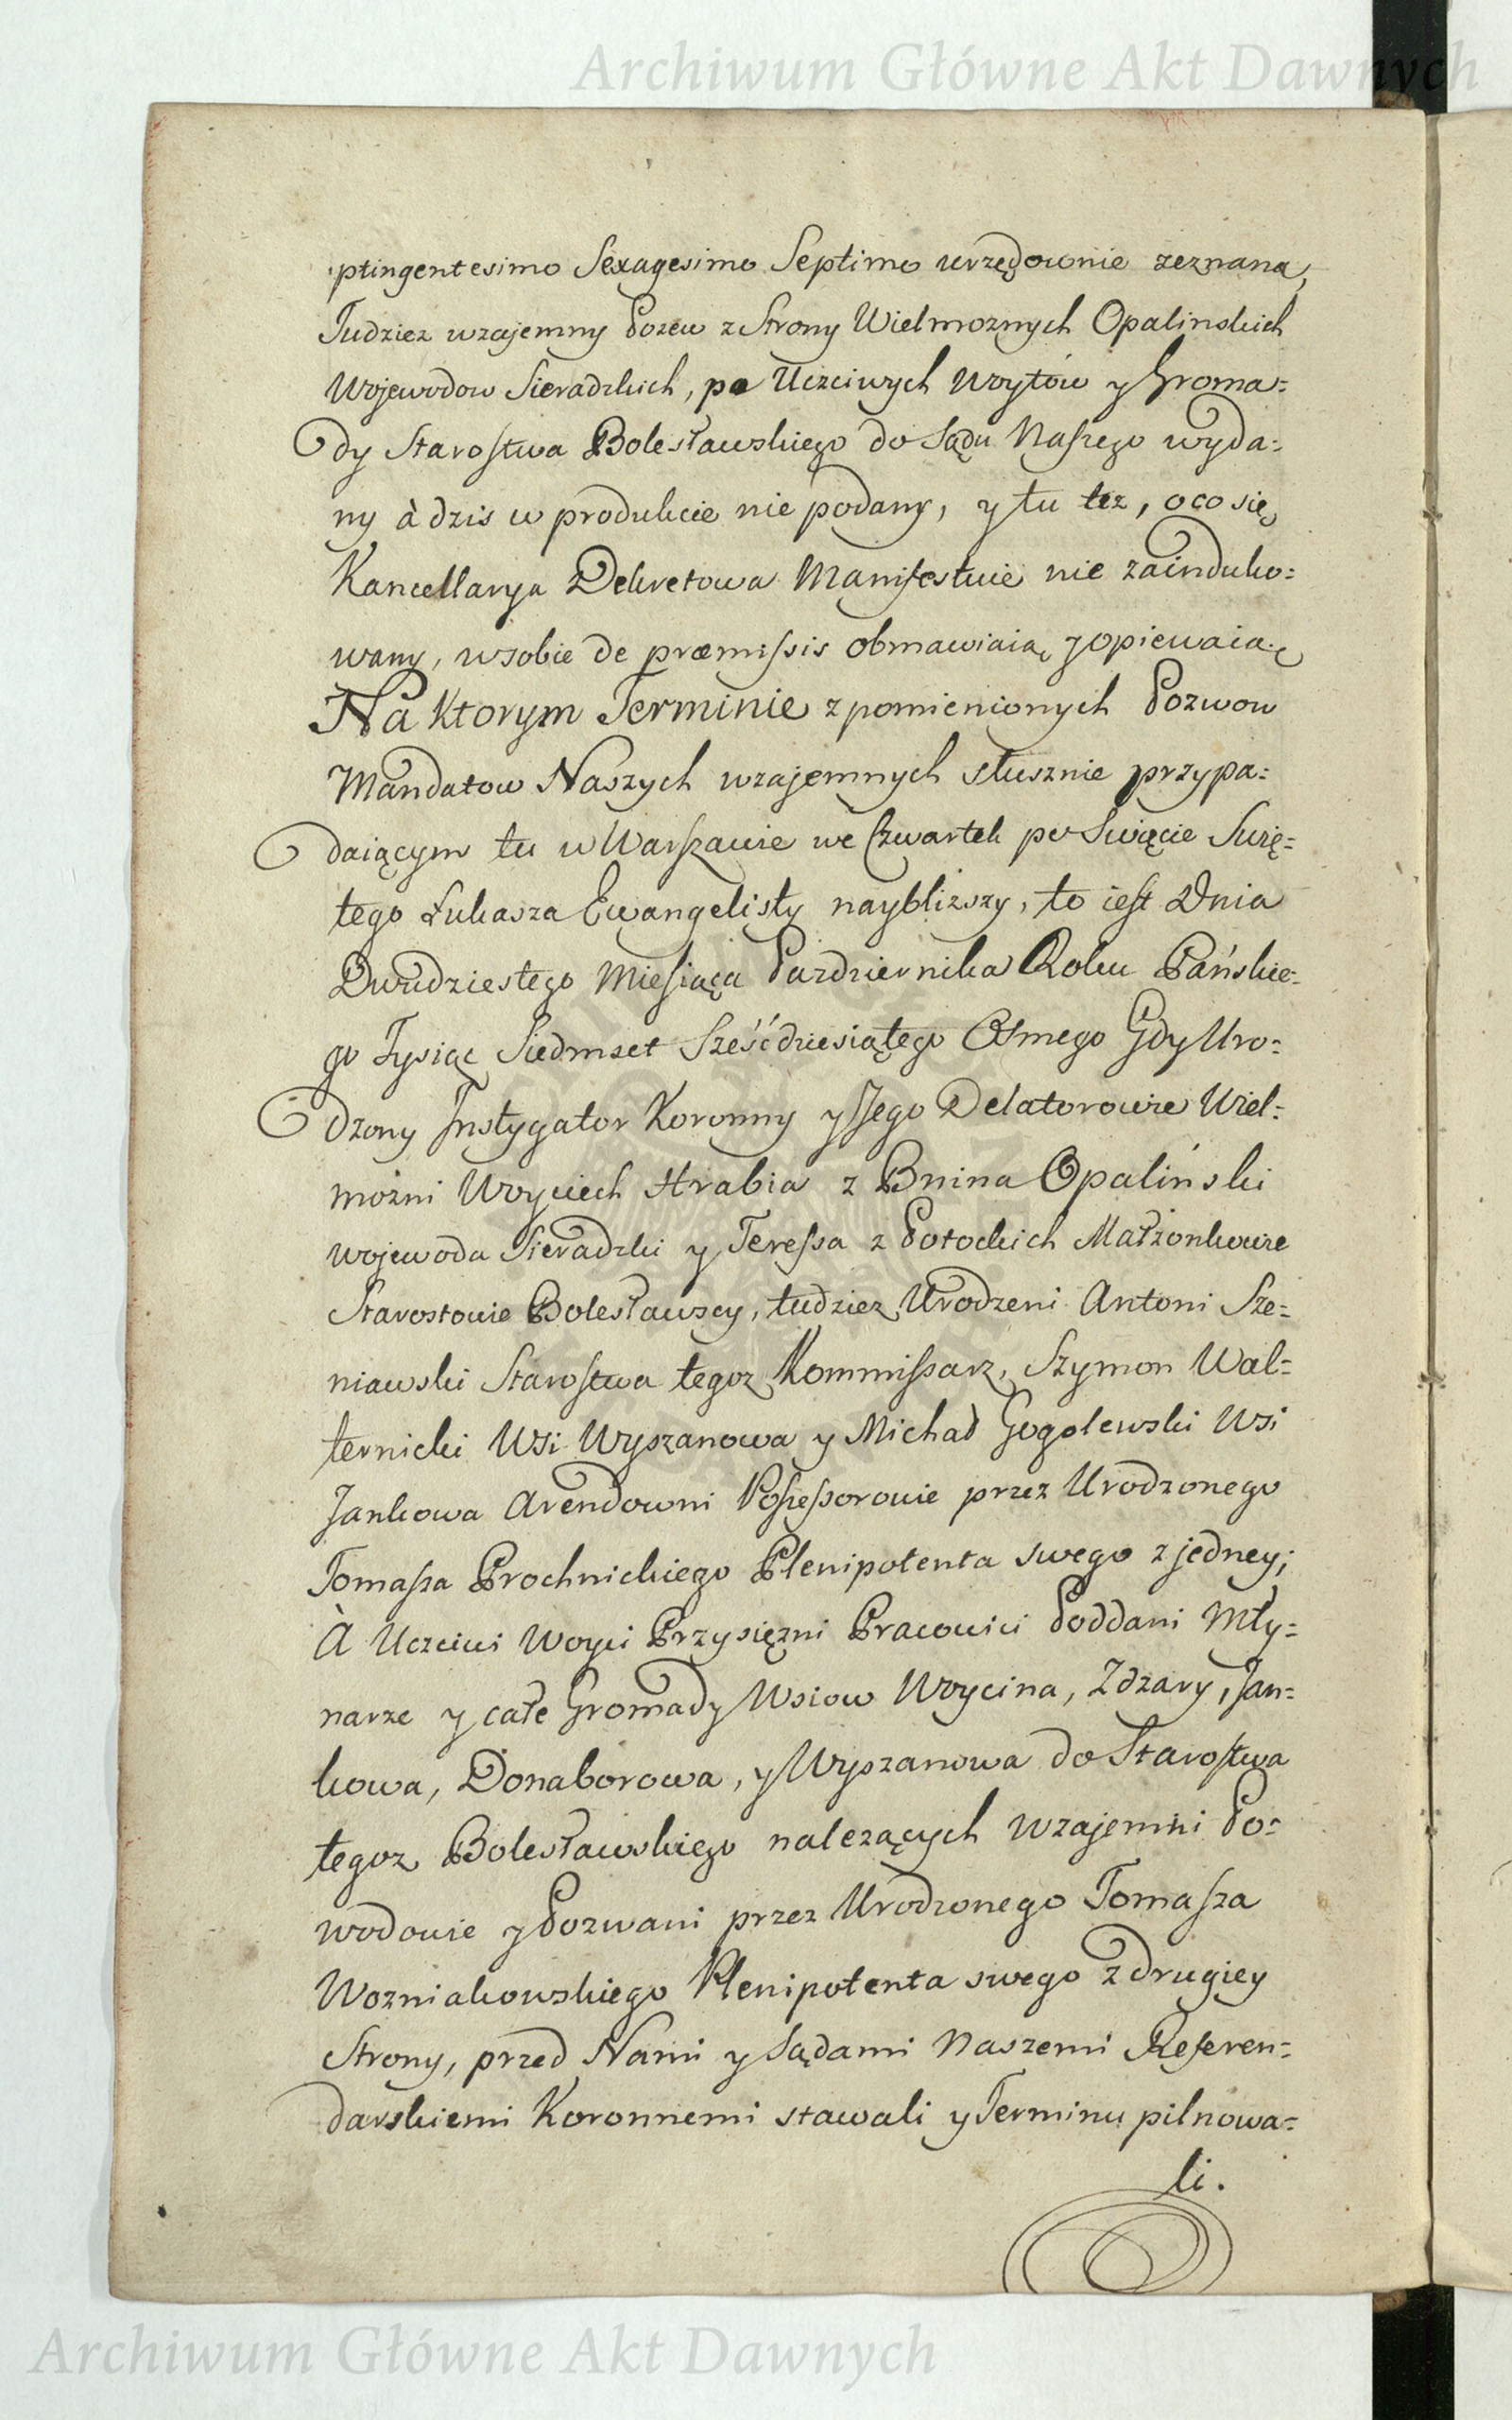 Archiwum Główne Akt Dawnych
ptingentesimo Sexagesimo Septimo urzędownie zeznana,
Tudziez wzajemny Pozew z Strony Wielmoznych Opalinskich
Wojewodow Sieradzkich, po Uczciwych Woytów y Groma=
dy Starostwa Bolesławskiego do Sądu Naszego wyda=
ny à dzis w produkcie nie podany, y tu tez, o co się
Kancellarya Dekretowa Manifestuie nie zainduko=
wany, w sobie de præmissis obmawiaią y opiewaią.
Na Ktorym Terminie z pomienionych Pozwow
Mandatow Naszych wzajemnych słusznie przypa=
daiącym tu w Warszawie we Czwartek po Swięcie Swię=
tego Łukasza Ewangelisty nayblizszy, to iest Dnia
Dwudziestego Miesiąca Pazdziernika Roku Pańskie=
go Tysiąc Siedmset Sześćdziesiątego Osmego Gdy Uro=
dzony Instygator Koronny y Jego Delatorowie Wiel=
możni Woyciech Hrabia z Bnina Opaliński
Wojewoda Sieradzki y Teressa z Potockich Małżonkowie
Starostowie Bolesławscy, tudziez Urodzeni Antoni Sze=
niawski Starostwa tegoz Kommissarz, Szymon Wal=
ternicki Wsi Wyszanowa y Michał Gogolewski Wsi
Jankowa Arendowni Possessorowie przez Urodzonego
Tomasza Prochnickiego Plenipotenta swego z jedney;
À Uczciwi Woyci Przysięzni Pracowici Poddani Mły=
narze y całe Gromady Wsiow Woycina, Zdzary, Jan=
kowa, Donaborowa, y Wyszanowa do Starostwa
tegoz Bolesławskiego nalezących wzajemni Po=
wodowie y Pozwani przez Urodzonego Tomasza
Wozniakowskiego Plenipotenta swego z drugiey
Strony, przed Nami y Sądami Naszemi Referen=
darskiemi Koronnemi stawali y Terminu pilnowa=
li.
Archiwum Główne Akt Dawnych